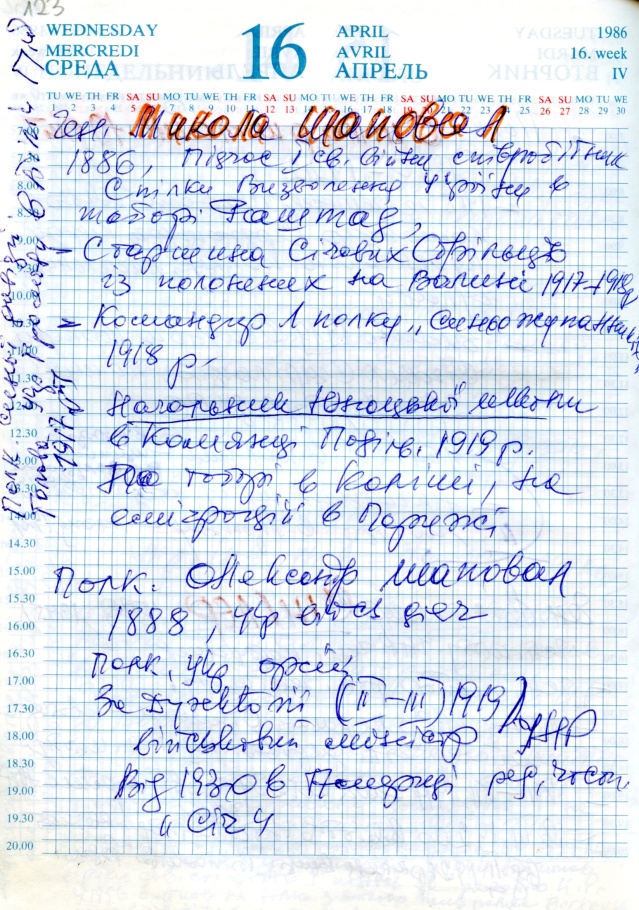 123
WEDNESDAY
MERCREDI
СРЕДА
16
APRIL
AVRIL
АПРЕЛЬ
1986
16. week
IV
TU WE TH FR SA SU MO TU WE TH FR SA SU MO TU WE TH FR SA SU MO TU WE TH FR SA SU MO TU WE
1 2 3 4 5 6 7 8 9 10 11 12 13 14 15 16 17 18 19 20 21 22 23 24 25 26 27 28 29 30
ген. Микола Шаповал
1886, Підчас І св. війни співробітник
Спілки Визволення України в
таборі Раштад,
- Старшина Січових Стрільців
із полонених на Волині 1917-1918р
= Командир 1 полку „Синьожупанників"
1918 р.
- Начальник Юнацької школи
в Камянці Поділ. 1919 р.
По таборі в Каліші, на
еміграції в Парижі
Полк. Олександр Шаповал
1888, Укр військ діяч
Полк. укр армії
За Директорії (II-III) 1919)
військовий міністр УНР
Від 1930 в ред. часоп.
"Січ"
Полк
Голова укр громади
1917
7.00
8.00
9.00
10.00
11.00
12.30
14.00
14.30
15.00
15.30
16.00
16.30
17.00
17.30
18.00
18.30
19.00
19.30
20.00